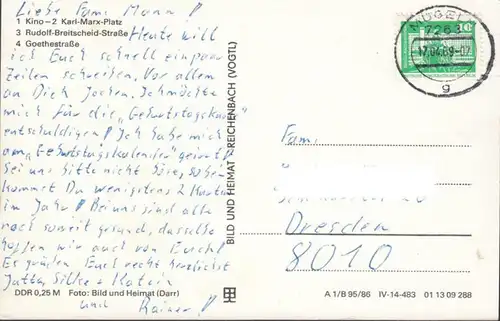 Liebe Fam. Mann!
1 Kino – 2 Karl-Marx-Platz
3 Rudolf-Breitscheid-Straße
4 Goethestraße
Heute will
ich Euch schnell ein paar
Zeilen schreiben. Vor allem
an Dich Jochen. Ich möchte
mich für die "Geburtstagskarte"
entschuldigen! Ich habe mich
am "Geburtstagskalender" geirrt!
Sei uns bitte nicht böse, so be-
kommst Du wenigstens 2 Karten
im Jahr! Bei uns sind alle
noch soweit gesund, dasselbe
hoffen wir auch von Euch!
Es grüßen Euch recht herzlichst
Jutta, Silke + Katrin
und Rainer!
DDR 0,25 M Foto: Bild und Heimat (Darr)
BILD UND HEIMAT REICHENBACH (VOGTL)
MÜGELN
7263
g
10
Fam.
Dresden
8010
A 1/B 95/86 IV-14-483 01 13 09 288